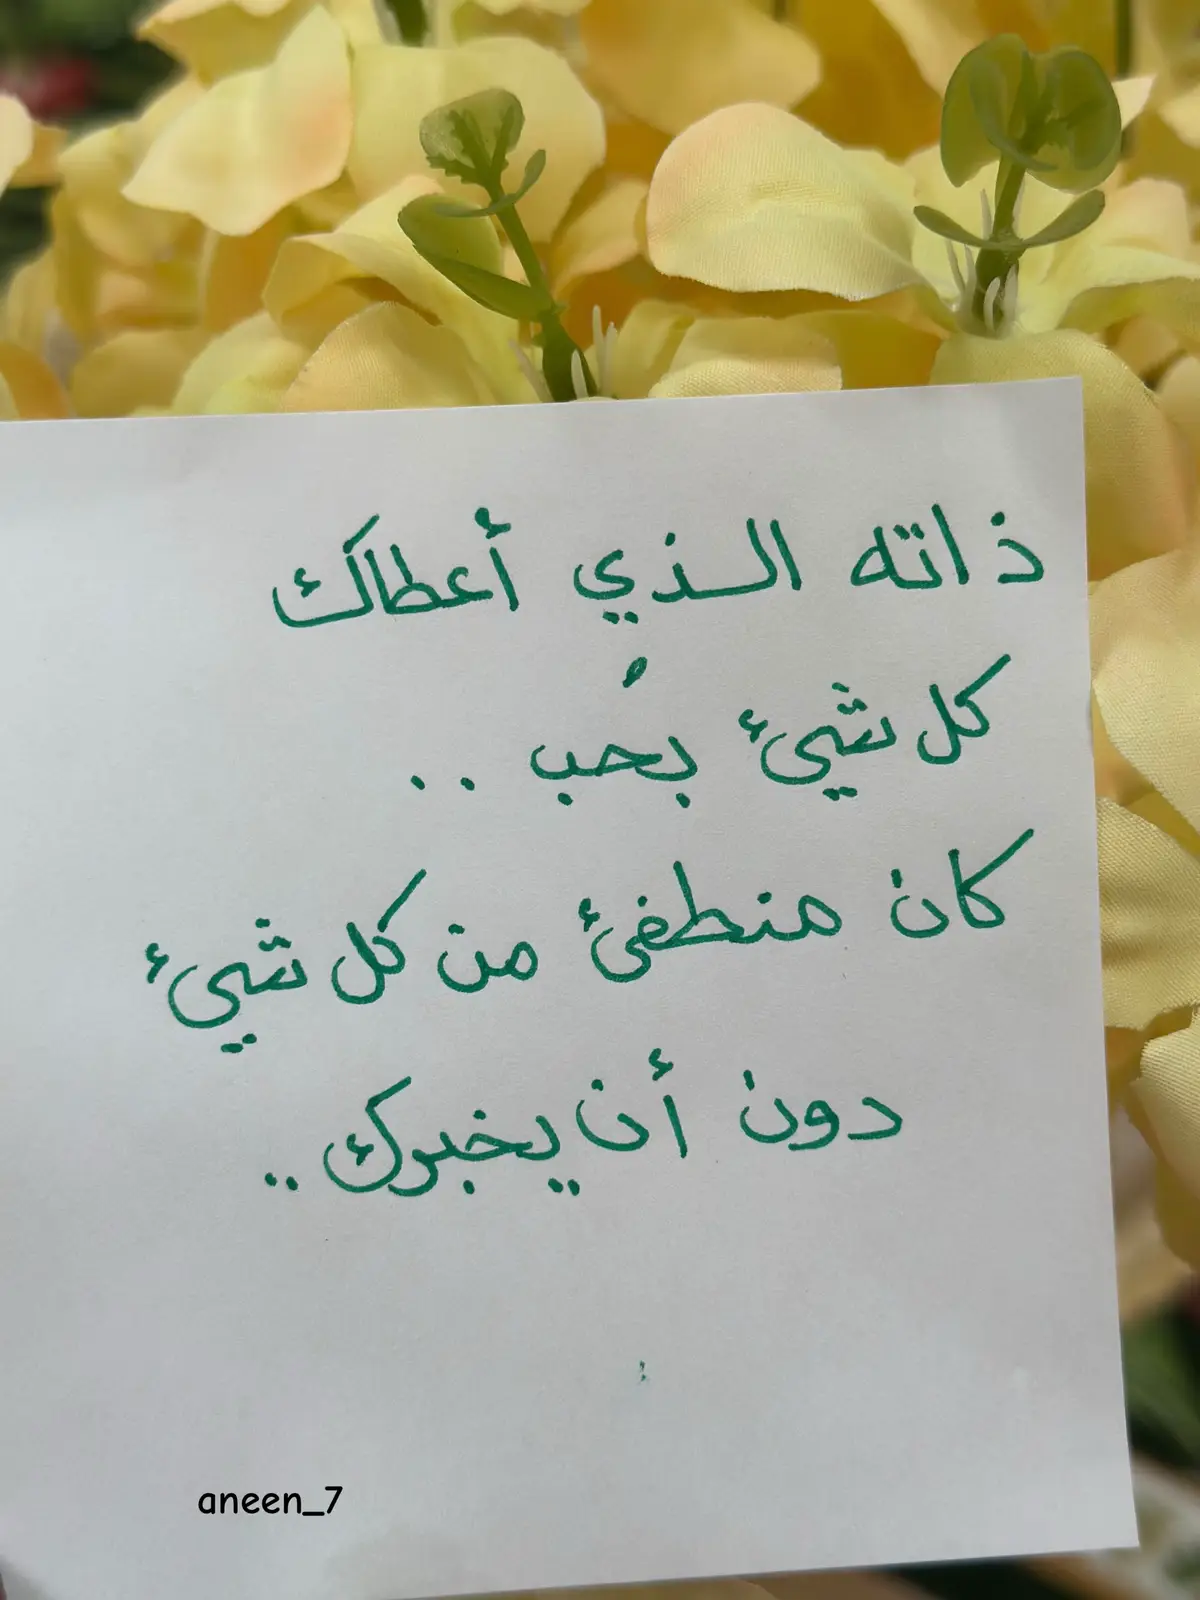 ذاته الـذي أعطاك
كل شيئ بحُب ..
كان منطفئ من كل شيئ
دون أن يخبرك ..
aneen_7